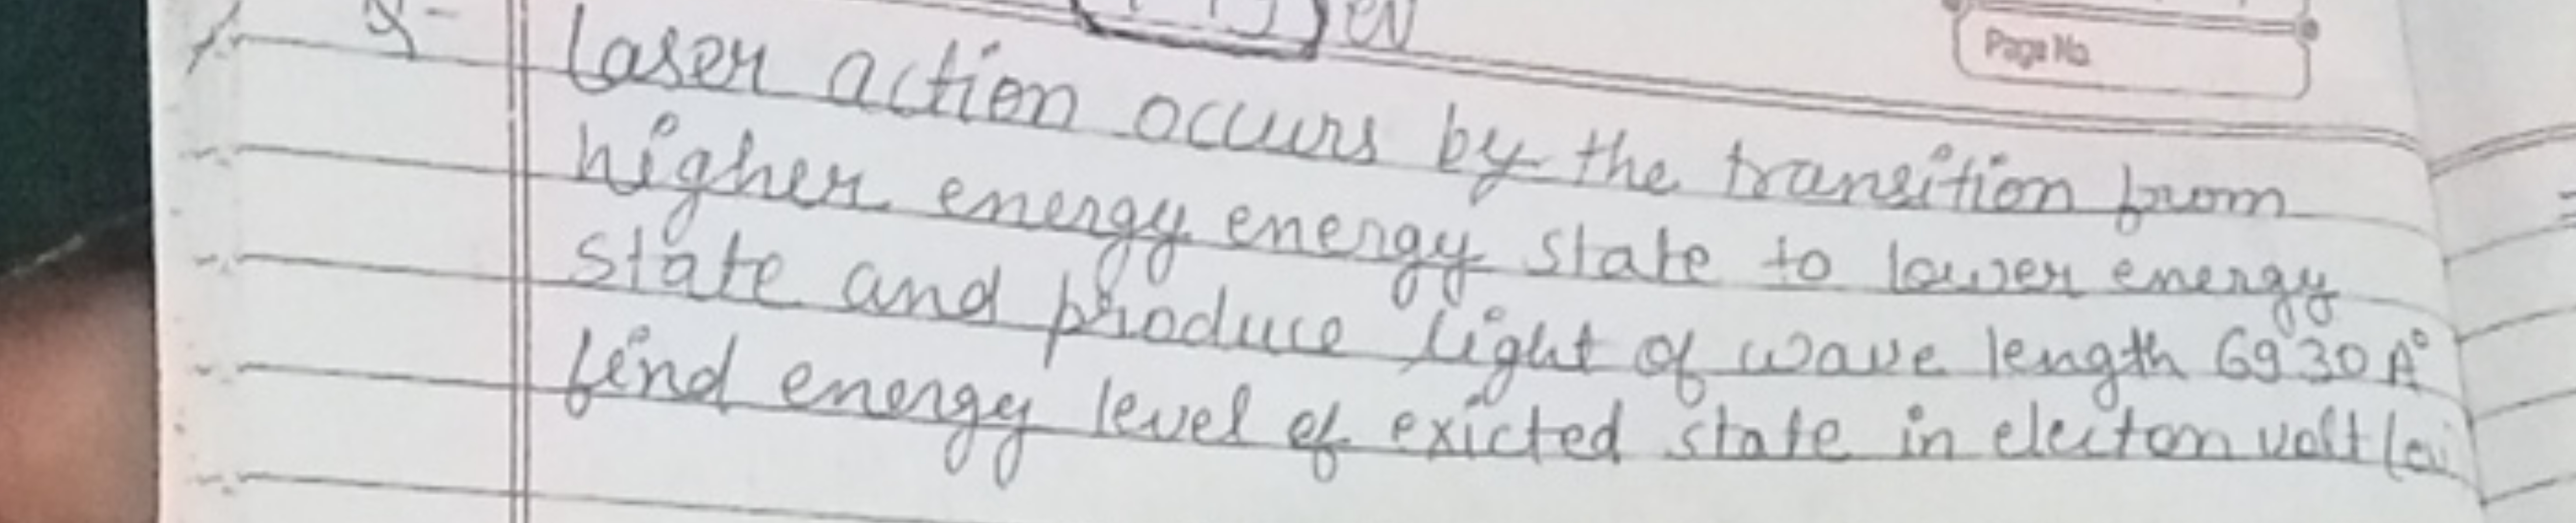 Page No.
Q- Laser action occurs by the transition from
higher energy energy state to lower energy
state and produce light of wave length 6930 A°
find energy level of exicted state in electon volt (ev